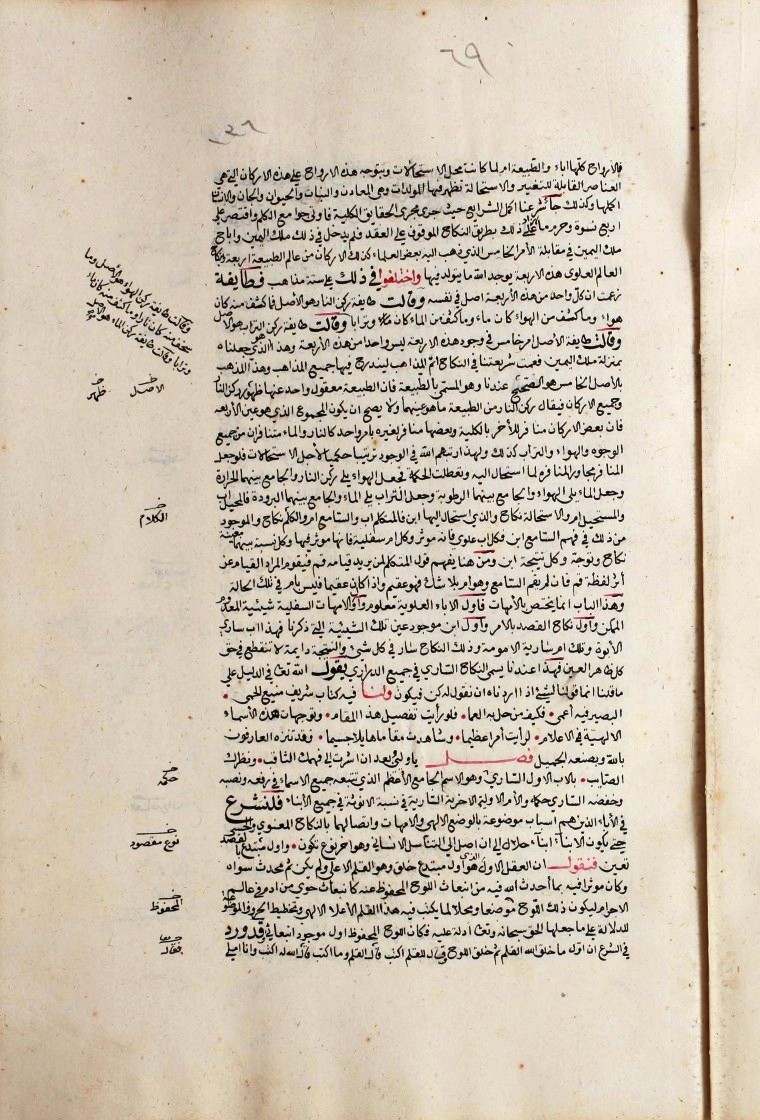 ٦٩
فالارواح كلها اباء والطبيعة ام لما كانت محل الاستحالات وبتوجه هذه الارواح على هذه الاركان التي هي
العناصر القابلة للتغيير والاستحالة تظهر فيها المولدات وهي المعادن والنبات والحيوان والجان والانسان
اكملها وكذلك جاء شرعنا اكمل الشرايع حيث جرى مجرى الحقايق الكلية فاوتي جوامع الكلم واقتصر على
اربع نسوة وحرم ما زاد على ذلك بطريق النكاح الموقوف على العقد فلم يدخل في ذلك ملك اليمين واباح
ملك اليمين في مقابلة الأمر الخامس الذي ذهب اليه بعض العلماء كذلك الاركان من عالم الطبيعة اربعة وبنكاح
العالم العلوى هذه الاربعة يوجد الله ما يتولد فيها واختلفوا في ذلك على ستة مذاهب فطايفة
زعمت ان كل واحد من هذه الأربعة اصل في نفسه وقالت طايفة ركن النار هو الاصل فما كثف منه كان
هواء وما كثف من الهواء كان ماء وما كثف من الماء كان ترابا وقالت طايفة ركن التراب هو الاصل
وقالت طايفة الأصل امر خامس ليس واحد من هذه الأربعة وهذا هو الذي جعلناه
بمنزلة ملك اليمين فعمت شريعتنا في النكاح اتم المذاهب ليندرج فيها جميع المذاهب وهذا المذهب
بالاصل الخامس هو الصحيح عندنا وهو المسمى بالطبيعة فان الطبيعة معقول واحد عنها ظهور ركن النار
وجميع الاركان فيقال ركن النار من الطبيعة ما هو عينها ولا يصح ان يكون المجموع الذي هو عين الأربعة
فان بعض الاركان منافر للأخر بالكلية وبعضها منافر لغيره بأمر واحد كالنار والماء متنافران من جميع
الوجوه والهواء والتراب كذلك ولهذا رتبهم الله في الوجود ترتيبا حكميا لأجل الاستحالات فلو جعل
المنافر مجاورا لمنافره لما استحال اليه وتعطلت الحكمة فجعل الهواء يلي ركن النار والجامع بينهما الحرارة
وجعل الماء يلي الهواء والجامع بينهما الرطوبة وجعل التراب يلي الماء والجامع بينهما البرودة فالمحيل اب
والمستحيل ام والاستحالة نكاح والذي استحال اليه ابن فالمتكلم اب والسامع ام والتكلم نكاح والموجود
من ذلك في فهم السامع ابن فكل اب علوي فانه مؤثر وكل ام سفلية فانها مؤثر فيها وكل نسبة بينهما معينة
نكاح وتوجه وكل نتيجة ابن ومن هنا يفهم قول المتكلم لمن يريد قيامه قم فيقوم المراد القيام عن
أثر لفظة قم فان لم يقم السامع وهو ام بلا شك فهو عقيم واذا كان عقيما فليس بام في تلك الحالة
وهذا الباب انما يختص بالأمهات فاول الاباء العلوية معلوم واول الامهات السفلية شيئية المعدوم
الممكن واول نكاح القصد بالامر واول ابن موجود عين تلك الشيئية التي ذكرنا فهذا اب ساري
الأبوة وتلك ام سارية الامومة وذلك النكاح سار في كل شيء والنتيجة دايمة لا تنقطع في حق
كل ظاهر العين فهذا عندنا يسمى النكاح الساري في جميع الذراري يقول الله تعالى في الدليل على
ما قلنا انما قولنا لشيء اذا اردناه ان نقول له كن فيكون ولنا فيه كتاب شريف منيع الحمى •
البصير فيه أعمى • فكيف من حل به العما • فلو رأيت تفصيل هذا المقام • وتوجهات هذه الأسماء
الالهية في الاعلام • لرأيت أمرا عظيما • وشاهدت مقاما هايلا جسيما • فقد تنزه العارفون
بالله وبصنعه الجميل فصل يا وليي وبعد ان اشرت الى فهمك الثاقب • ونظرك
الصايب • بالاب الاول الساري وهو الاسم الجامع الأعظم الذي تتبعه جميع الاسماء في رفعه ونصبه
وخفضه الساري حكمه والأم الاولية الاخرية السارية في نسبة الانوثة في جميع الأبناء فلنشرع
في الأباء الذين هم أسباب موضوعة بالوضع الالهي والامهات واتصالهما بالنكاح المعنوي والحسي
حتى يكون الابناء ابناء حلال الى ان اصل الى التناسل الانساني وهو اخر نوع تكون • واول مبتدع بالقصد
تعين فنقول ان العقل الاول الذي هو أول مبتدع خلق وهو القلم الاعلى ولم يكن ثم محدث سواه
وكان مؤثرا فيه بما أحدث الله فيه من انبعاث اللوح المحفوظ عنه كانبعاث حوى من ادم في عالم
الاجرام ليكون ذلك اللوح موضعا ومحلا لما يكتب فيه هذا القلم الأعلا الالهي وتخطيط الحروف الموضوعة
للدلالة على ما جعلها الحق سبحانه وتعالى أدلة عليه فكان اللوح المحفوظ اول موجود انبعاثي وقد ورد
في الشرع ان اول ما خلق الله القلم ثم خلق اللوح وقال للقلم اكتب قال القلم وما اكتب قال الله له اكتب وانا املي
وقالت طايفة ركن الهواء هو الأصل وما
سخف منه كان نارا وما كثف منه كان ماء
وترابا وقالت طايفة ركن الماء هو الاصل
الاصل
ظهر
الكلام
حكمه
نوع مقصود
المحفوظ
فقال